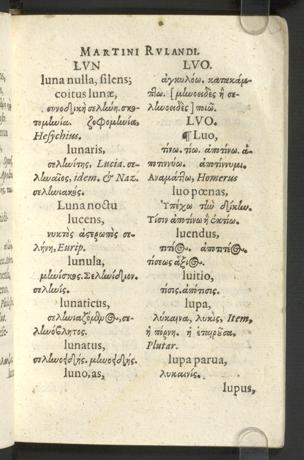 MARTINI RVLANDI.
LVN
luna nulla, silens;
coitus lunæ,
συνοδικὴ σελήνη. σκο-
τομηνία. ζοφομηνία,
Hesychius.
lunaris,
σεληνίτης, Lucia. σε-
ληναῖος, idem. & Naz.
σεληνιακός.
Luna noctu
lucens,
νυκτὸς ἀστρωπὸς σε-
λήνη, Eurip.
lunula,
μηνίσκος. Σεληνίδιον.
σεληνίς.
lunaticus,
σεληνιαζόμενος, σε-
ληνόβλητος.
lunatus,
σεληνοειδής. μηνοειδής.
luno, as,
LVO.
ἀγκυλόω. κατακάμ-
πτω. [μηνοειδὲς ἢ σε-
ληνοειδὲς] ποιῶ.
LVO.
¶ Luo,
τίνω. τίω. ἀποτίνω. ἀ-
ποτιννύω. ἀποτίννυμι.
Homerus
luo pœnas,
Ὑπέχω τὴν δίκην.
Τίσιν ἀποτίνω ἢ ἐκτίω.
luendus,
ἀποτιτέος.
τίσεως ἄξιος.
luitio,
τίσις. ἀπότισις.
lupa,
λύκαινα, λυκίς, Item.
ἡ πόρνη. ἡ ἑταιροῦσα.
Plutar.
lupa parua,
λυκαινίς.
lupus,